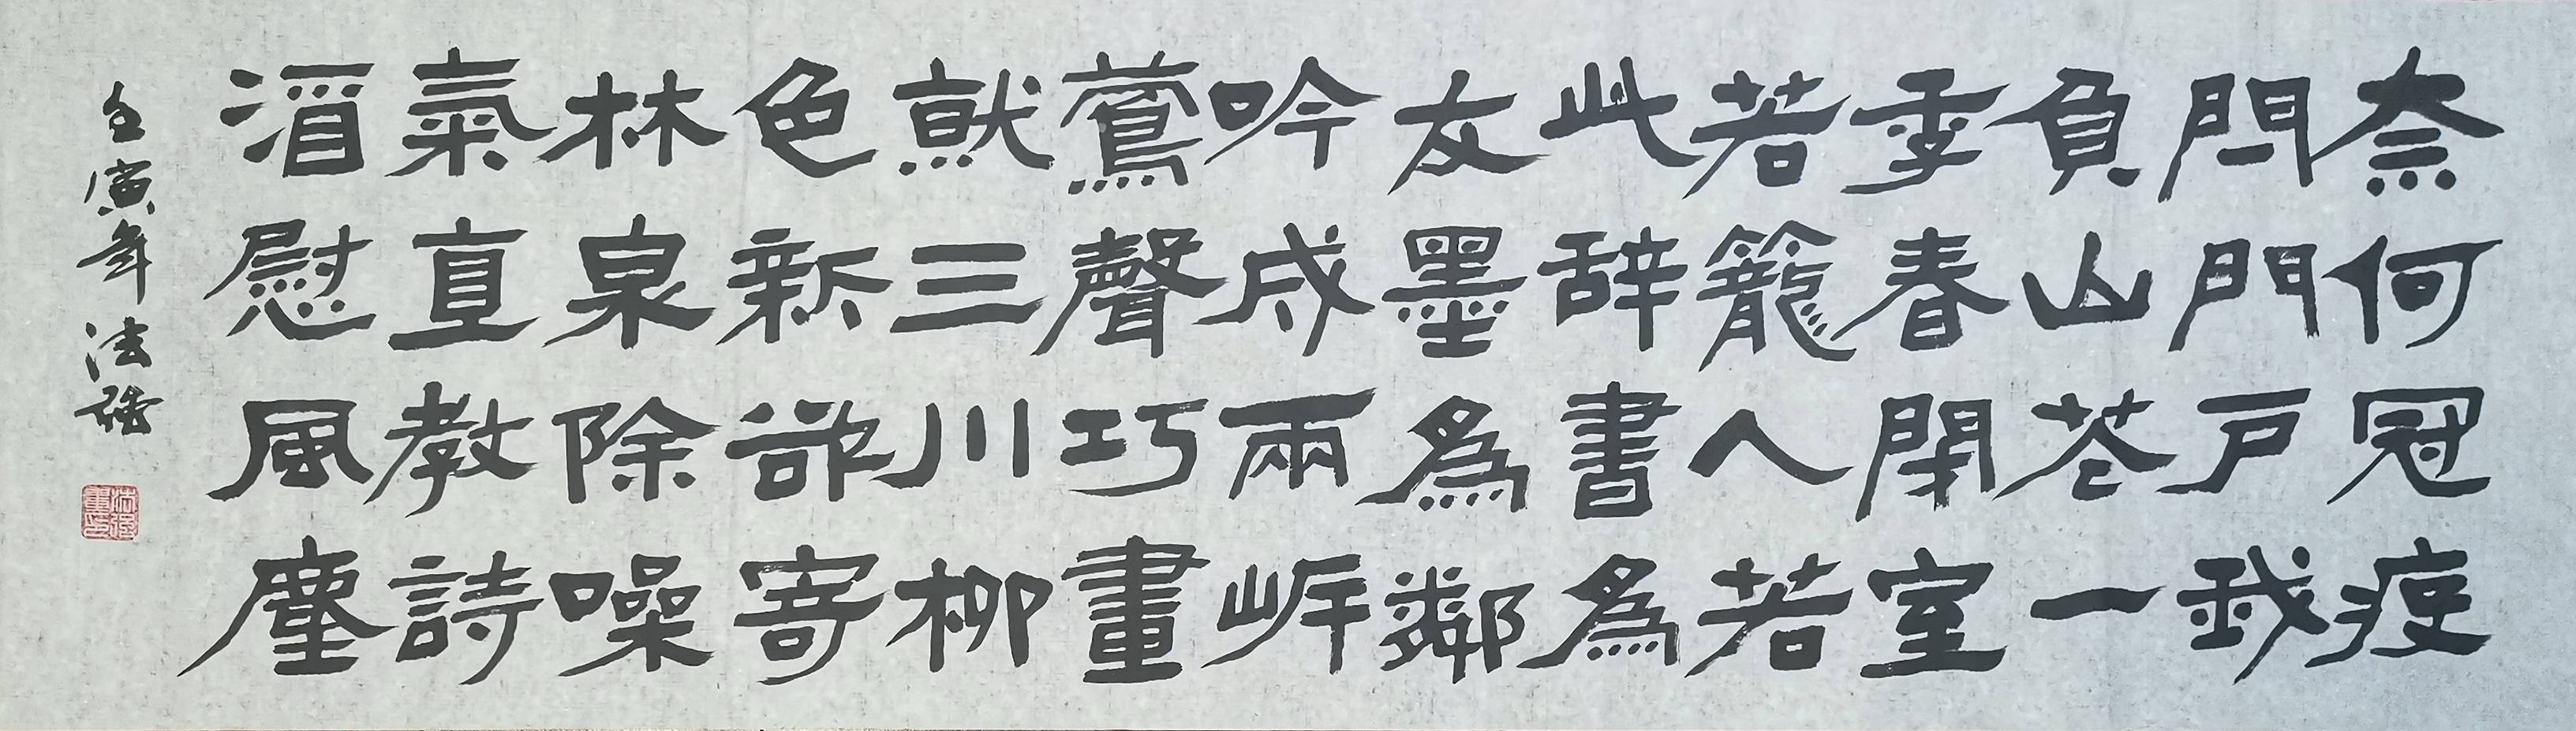 奈何冠疫
閂門戶我
負山花一
季春閉室
若籠人若
此辞書為
友墨為鄰
吟成兩岸
鶯聲巧畫
就三川柳
色新欲寄
林泉除噪
氣直教詩
酒慰風塵
壬寅年 法強